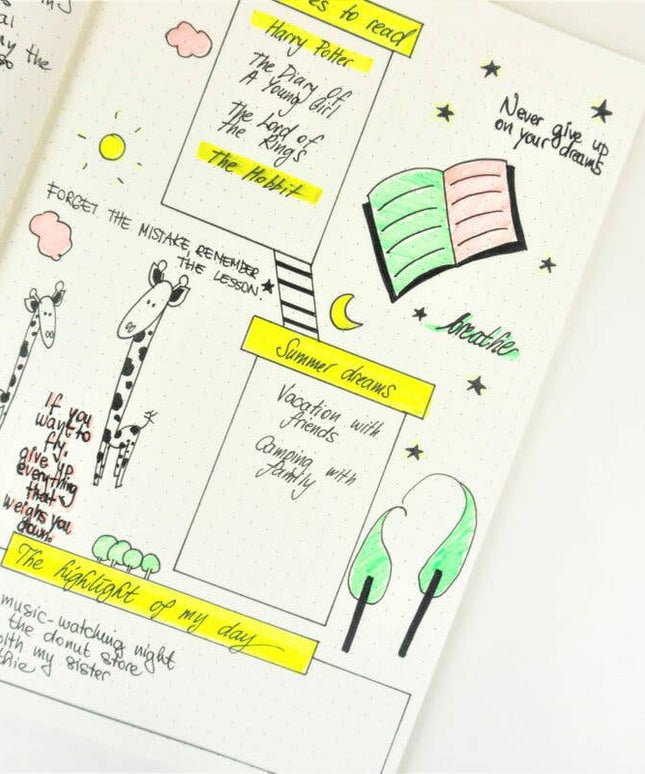 to read
Harry Potter
The Diary of
A Young Girl
The Lord of
the Rings
The Hobbit
Never give up
on your dreams
FORGET THE MISTAKE, REMEMBER
THE LESSON.
breathe
Summer dreams
Vacation with
friends
Camping with
family
If you
want to
fly,
give up
everything
that
weighs you
down.
The highlight of my day
music-watching night
the donut store
with my sister
my the